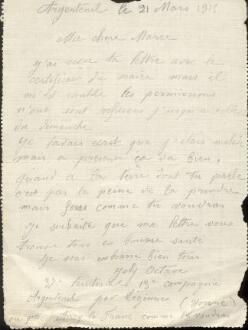 Argenteuil le 21 Mars 1915
Ma chere Marie
j'ai reçu ta lettre avec le
certificat du maire mais il
me semble les permissions
n'ont sont
du dimanche
je t'avais écrit que j'étais malade
mais a présent ça va bien.
quand a la terre dont tu parle
c'est pas la peine de la prendre
mais feras comme tu voudras
je souhaite que ma lettre vous
trouve tous en bonne santé
je vous embrasse bien tous
Octave
37 territorial 13e compagnie
Argenteuil par (Yonne)
la comme tu voudras